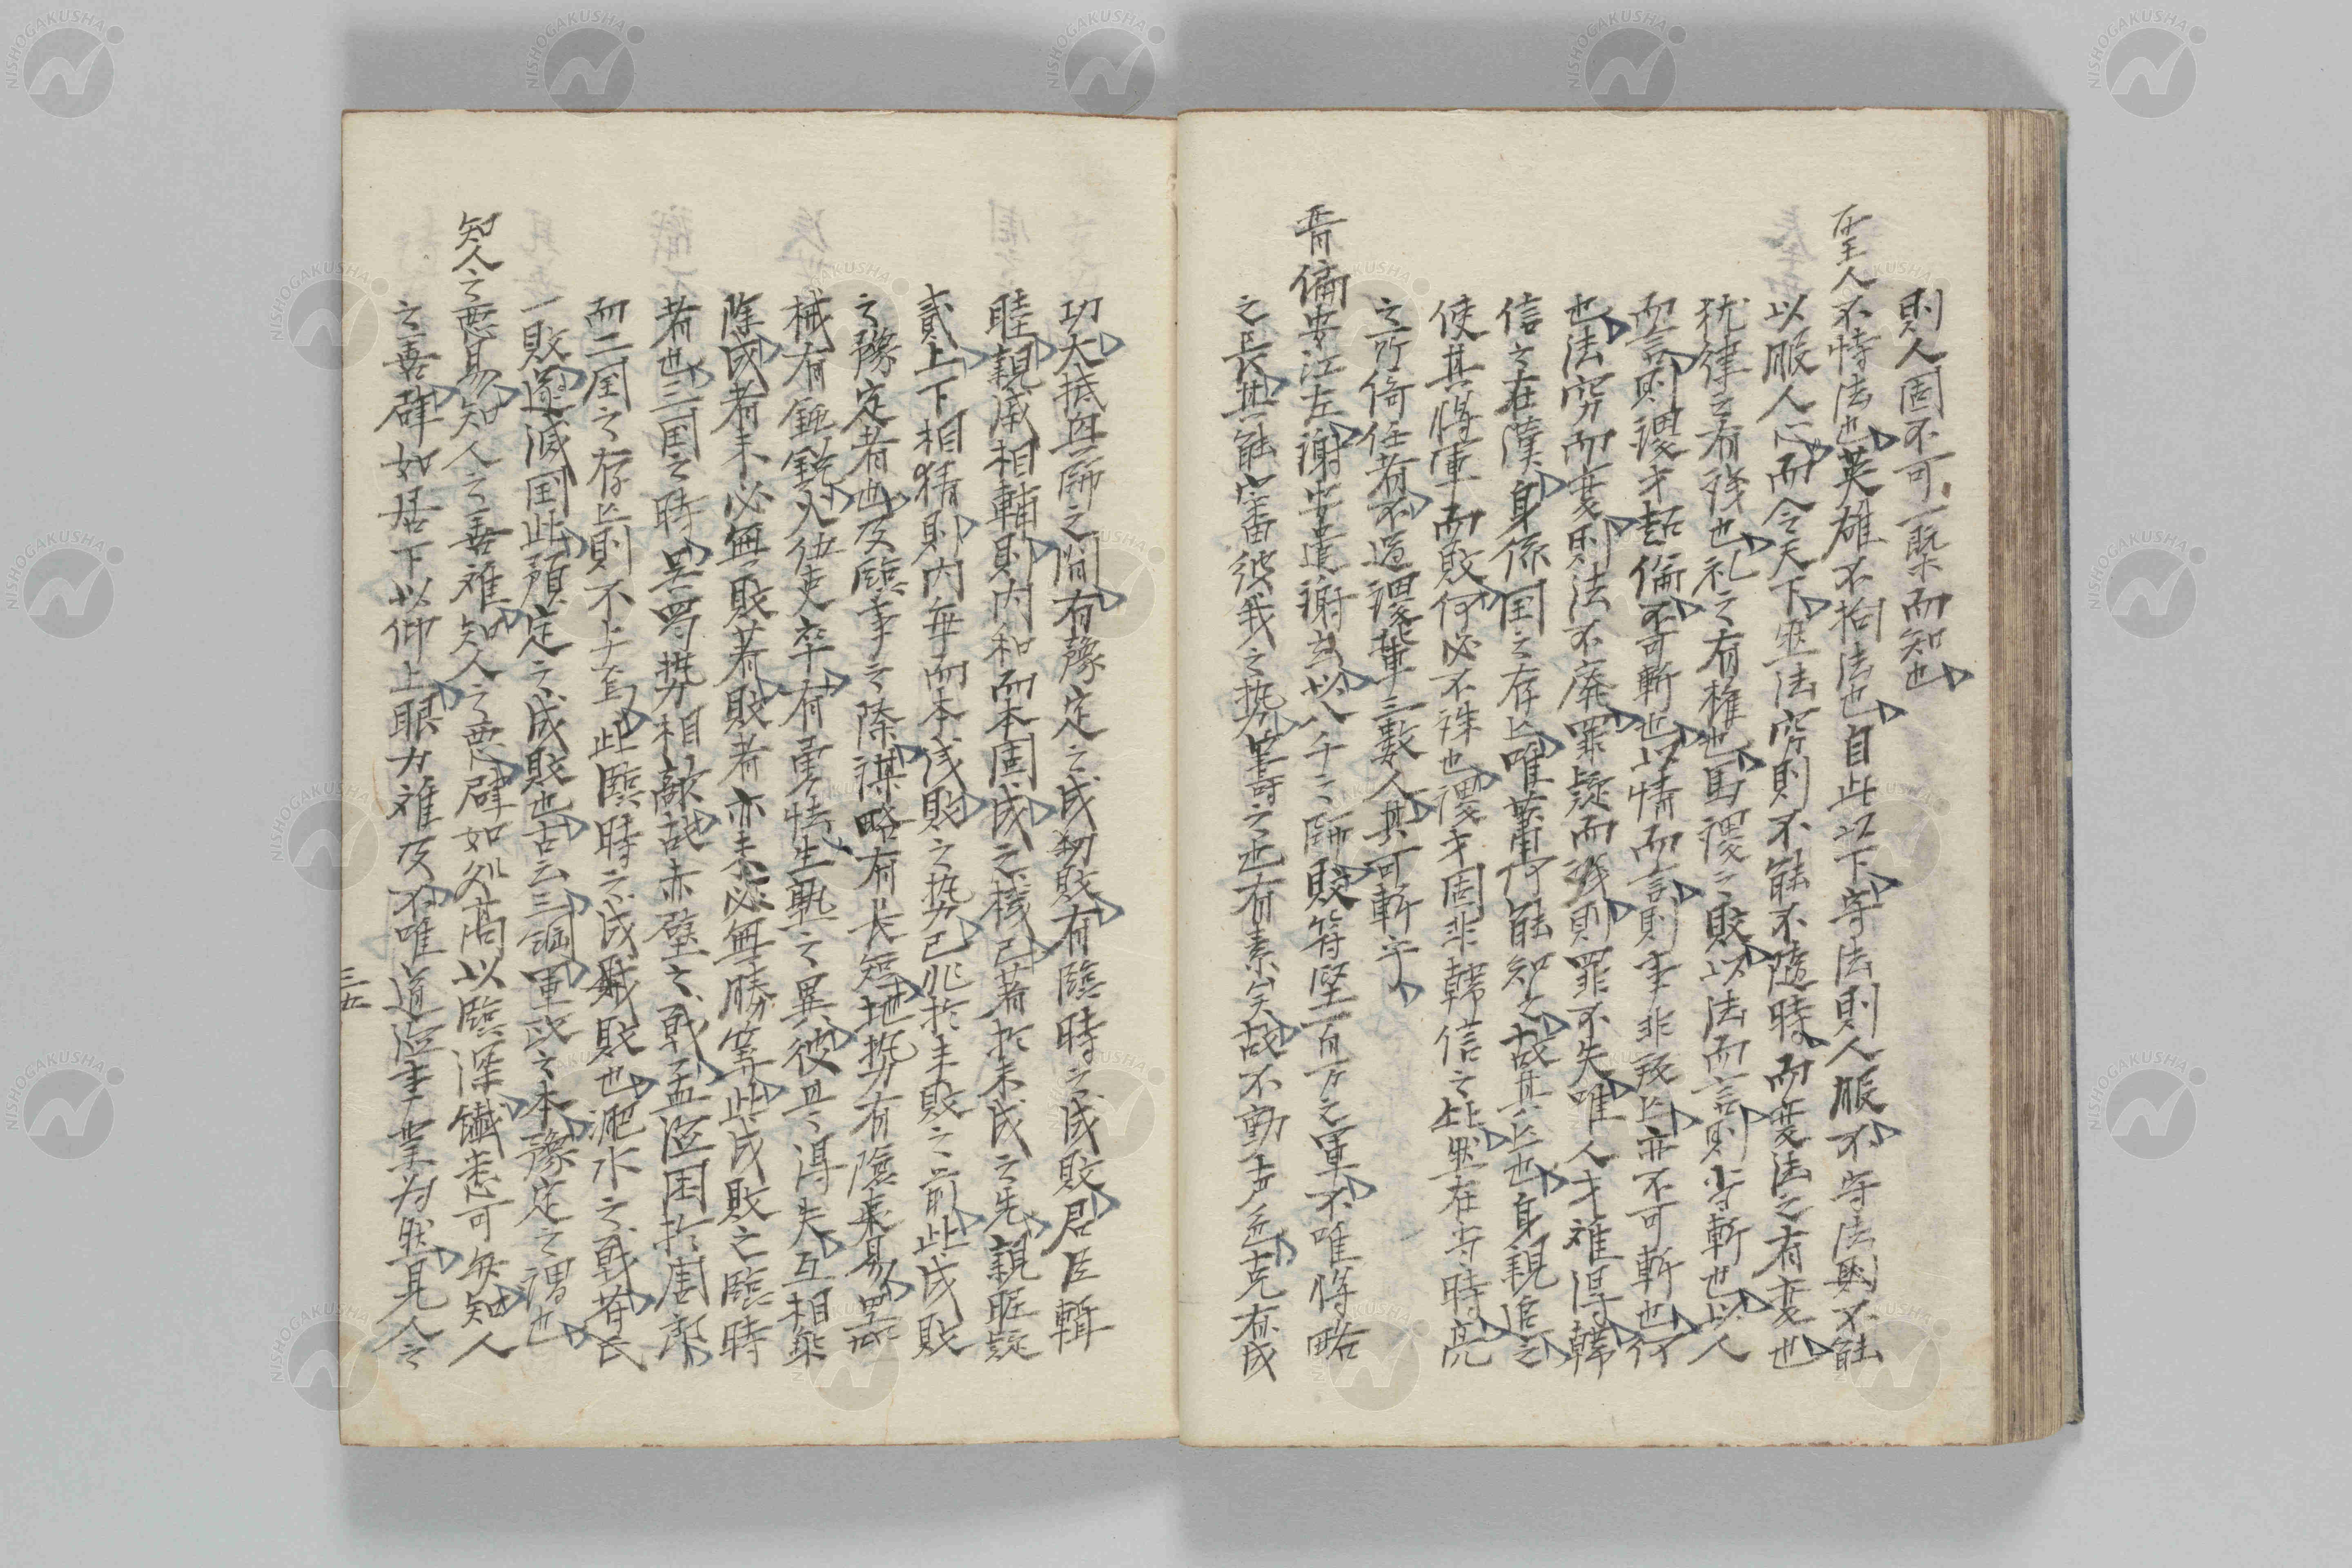 則人固不可一槩而知也
聖人不恃法也英雄不拘法也自此以下守法則人服不守法則不能
以服人心而令天下然法窮則不能不隨時而変法之有変也
犹律之有残也礼之有権也馬謖之敗以法而言則当斬也以人
而言則謖才超倫不可斬也以情而言則事非叛亡亦不可斬也何
也法窮而変則法不廃罪疑而残則罪不失唯人才難得韓
信之在漢身係国之存亡唯蕭何能知之故其亡也身親追之
使其将軍而敗何必不誅也謖才固非韓信之比然在当時亮
之所倚任者不過謖輩三数人其可斬乎
晋偏安江左謝安遣謝玄以八千之師敗符堅百万之軍不唯将略
之長其能審彼我之勢籌之也有素矣故不動声色克有成
功大抵興師之間有豫定之成敗有臨時之成敗君臣輯
睦親戚相輔則内和而本固成之機已著於未成之先親昵疑
貳上下相猜則内毎而本浅敗之勢已兆於未敗之前此成敗
之豫定者也及臨事之際謀略有長短地勢有険易器
械有鈍鋭人使吏卒有勇怯生熟之異彼是得失互相乗
除成者未必無敗着敗者亦未必無勝筭此成敗之臨時
者也三国之時呉蜀勢相敵故赤壁之戦孟徳困於周郎
而二国之存亡則不与焉此臨時之成敗也淝水之戦苻氏
一敗遂滅国此預定之成敗也古云三綱軍政之本豫定之謂也
知人之悪易知人之善難知人之悪辟如処高以臨深鑑悉可毎知人
之善辟如居下以仰上眼力難及不唯道徳事業為然見人之
三五